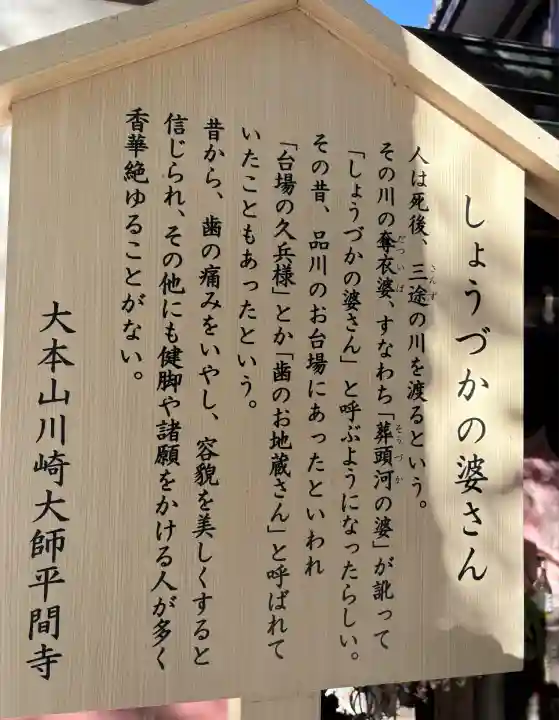 しょうづかの婆さん
人は死後、三途の川を渡るという。
その川の奪衣婆、すなわち「葬頭河の婆」が訛って
「しょうづかの婆さん」と呼ぶようになったらしい。
その昔、品川のお台場にあったといわれ
「台場の久兵様」とか「歯のお地蔵さん」と呼ばれて
いたこともあったという。
昔から、歯の痛みをいやし、容貌を美しくすると
信じられ、その他にも健脚や諸願をかける人が多く
香華絶ゆることがない。
大本山川崎大師平間寺
さんず
だついば
そうづか